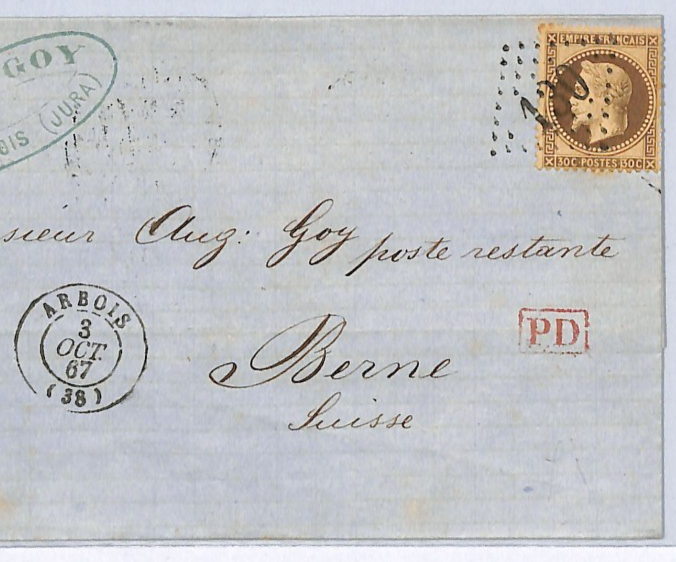 GOY
(JURA)
EMPIRE FRANCAIS
30C·POSTES·30C
sieur Aug: Goy poste restante
ARBOIS
3
OCT.
67
(38)
PD
Berne
Suisse